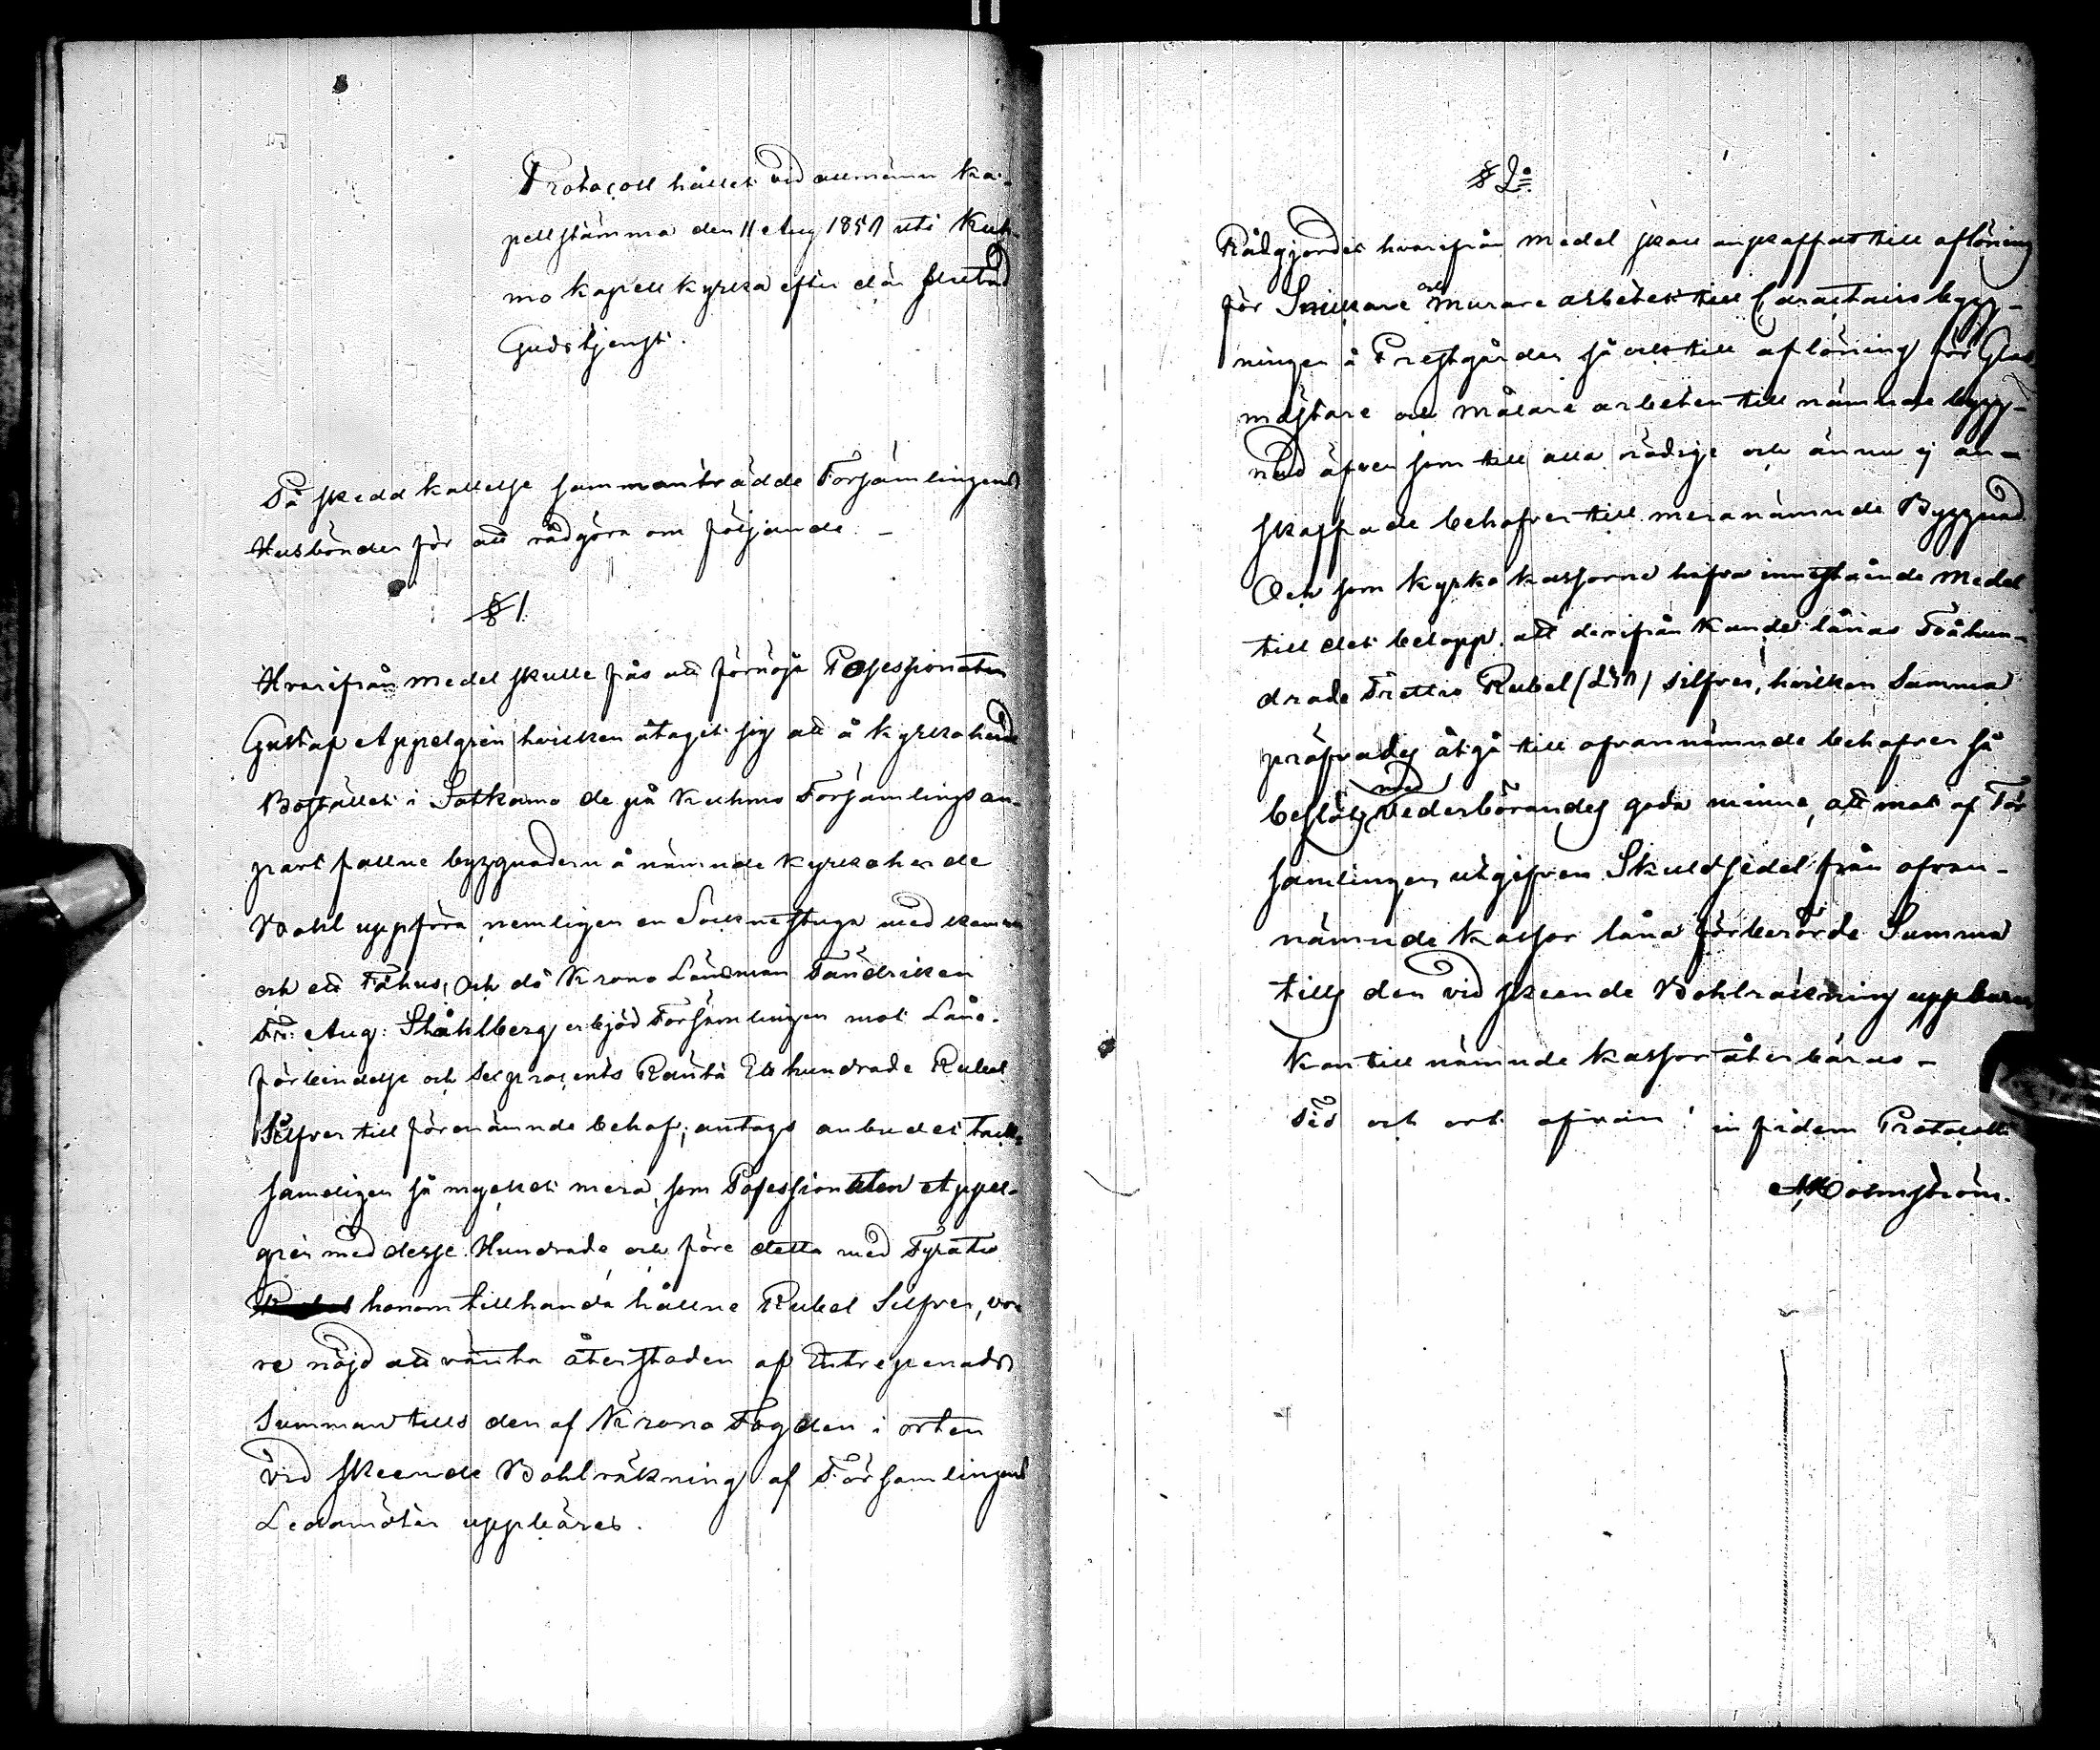 Protocoll hållet vid allmänn Ka-
pellstämma den 11 Aug 1850 uti Kuh-
mo Kapell Kyrka efter där slutad
Gudstjenst.
På skedd kallelse sammanträdde Församlingens
Husbönder för att rådgöra om följande. –
§ 1.
Hvarifrån medel skulle fås att förnöja Pofessionaten
Gustaf Appelgrén hvilken åtaget sig att å Kyrkoherde
Bostället i Sotkamo de på Kuhmo Församlings an-
part fallne byggnadern å nämnde Kyrkoherde
Bohl uppföra nemligen en Socknestuga med kammar
och ett Fähus, Och då Krono Länsman Fändriken
Fr: Aug: Ståhlberg erbjöd Församlingen mot Låne-
förbindelse och sex procents Ränta Etthundrade Rubel
Silfver till förenämnde behof; antogs anbudet tack-
sameligen så mycket mera, som Pofessionaten Appel-
grén med desse Hundrade och före detta med Fyratio
honom tillhanda hållne Rubel Silfver, vo-
re nöjd att vänta återstoden af Entrepenads
Summan tills den af Krono Fogden i orten
vid skeende Bohlräkning af Församlingens
Ledamöter uppbäres.
§ 2:
Rådgjordes hvarifrån medel skall anskaffas till aflöning
för Snickare och Murare arbetet till Caractairs bygg-
ningen å Prestgården så ock till aflöning för Glas
mästare och Målare arbeten till nämnde bygg-
nad äfven som till alla nödige och ännu ej an-
skaffade behofver till meranämnde Byggnad
Och som Kyrko kassorne hafva innestående Medel
till det belopp, att derifrån kunde lånas Tvåhun-
drade Trettio Rubel (230) silfver, hvilken Summa
pröfvades åtgå till ofvannämnde behofver så
beslöts med Vederbörandes goda minne, att mot af För
samlingen utgifven Skuldsedel från ofvan-
nämnde Kassor låna förberörde Summa
tills den vid skeende Bohlräkning uppbären
kan till nämnde Kassor återbäras –
Tid och ort ofvan! in fidem Protocolli
A. Holmström.